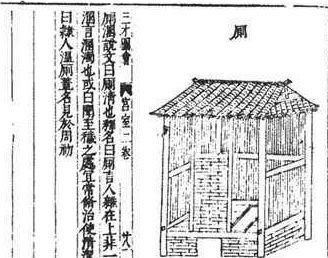 厠
三才圖會 宮室二卷 廿八
厠溷說文曰厠清也釋名曰厠言人雜在上非一
溷言溷濁也或曰圊至穢之處宜常脩治使潔
曰隸人湼厠蓋名見於周初